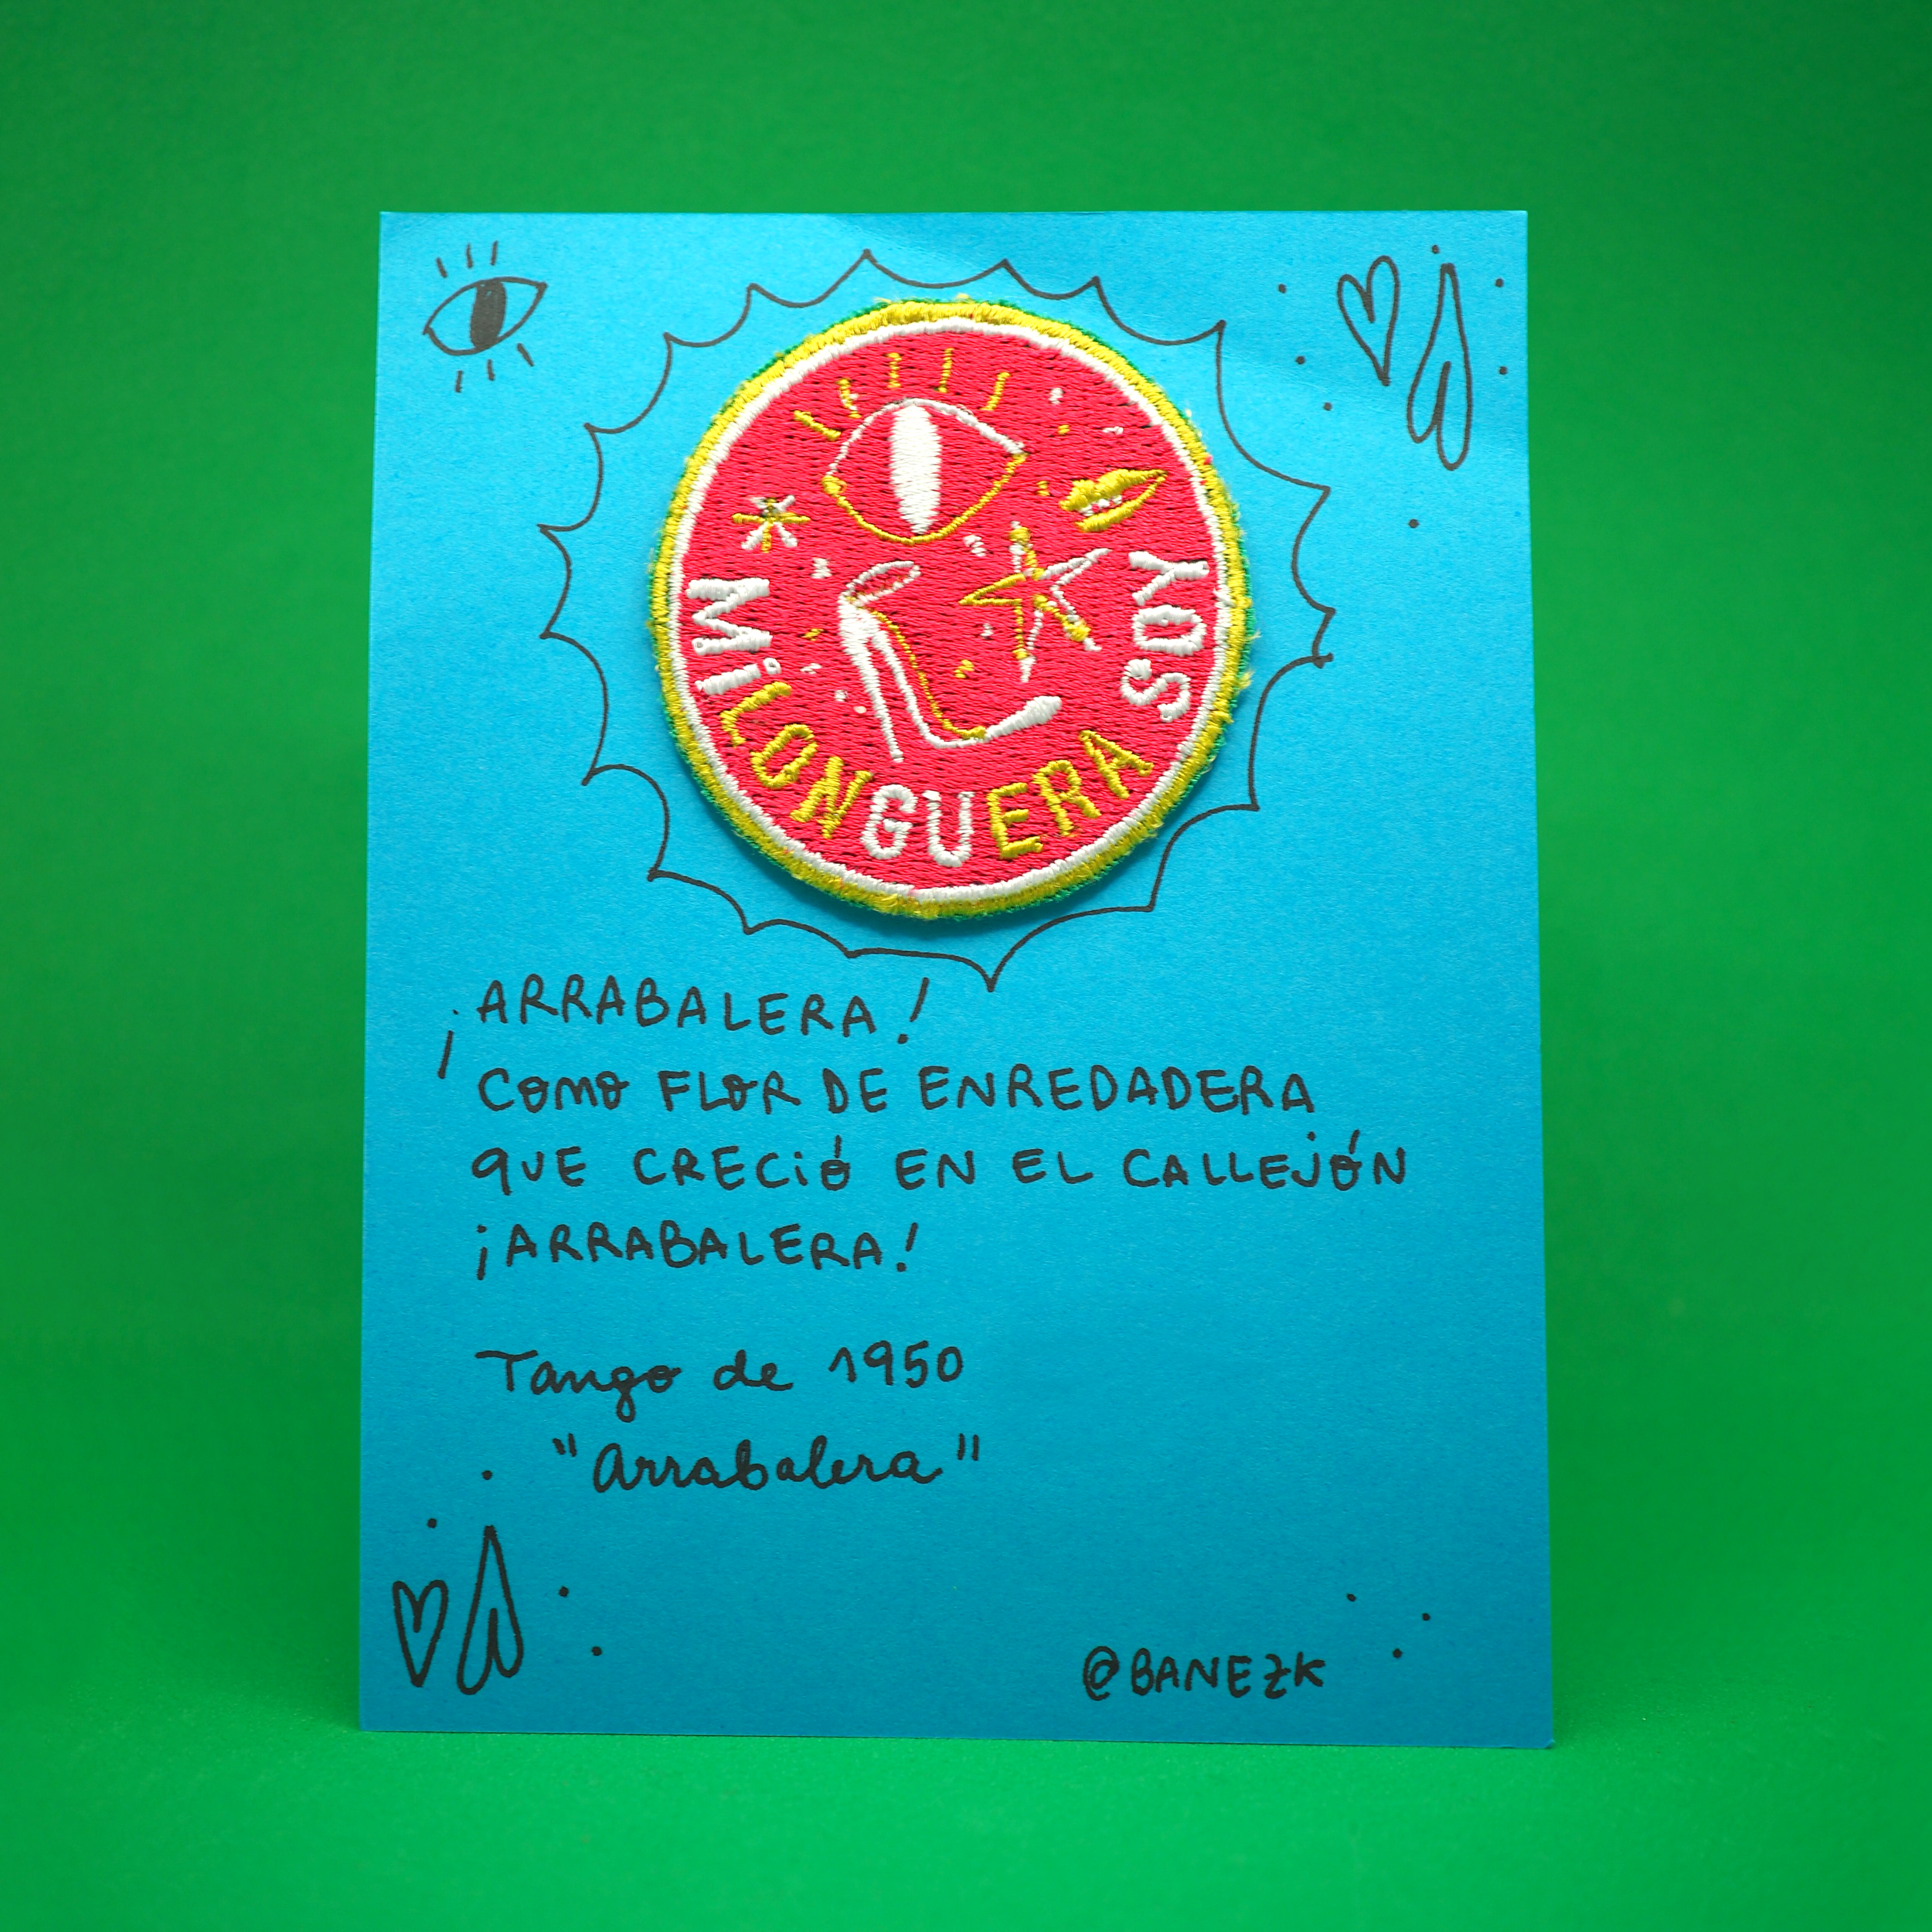 MiLONGUERA SOY
¡ARRABALERA!
COMO FLOR DE ENREDADERA
QUE CRECiÓ EN EL CALLEJÓN
¡ARRABALERA!
Tango de 1950
"Arrabalera"
@BANEZK